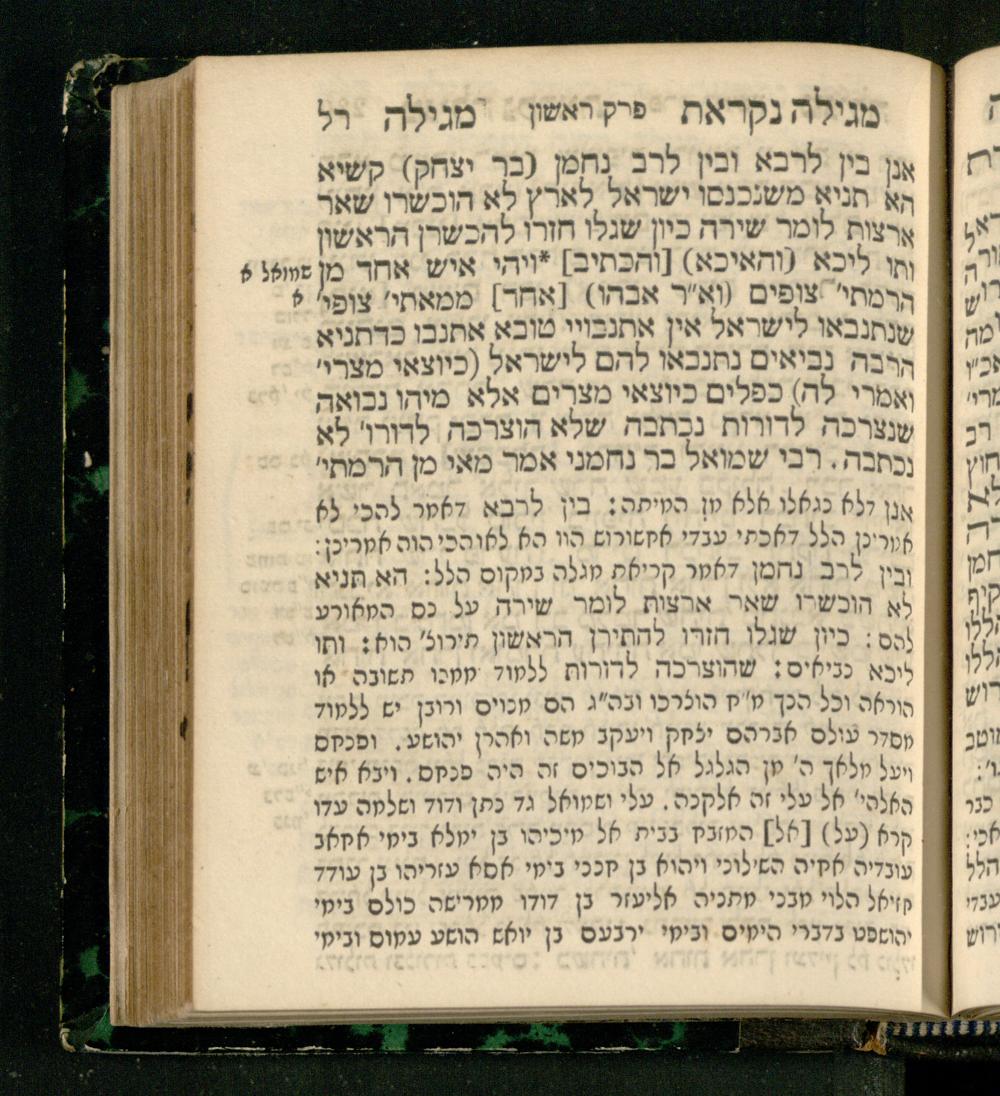 מגילה נקראת פרק ראשון מגילה רל
אנן בין לרבא ובין לרב נחמן (בר יצחק) קשיא
הא תניא משנכנסו ישראל לארץ לא הוכשרו שאר
ארצות לומר שירה כיון שגלו חזרו להכשרן הראשון
ותו ליכא (והאיכא) [והכתיב] *ויהי איש אחד מן
שמואל א
הרמתי׳ צופים (וא״ר אבהו) [אחד] ממאתי׳ צופי׳
א
שנתנבאו לישראל אין אתנבויי טובא אתנבו כדתניא
הרבה נביאים נתנבאו להם לישראל (כיוצאי מצרי׳
ואמרי לה) כפלים כיוצאי מצרים אלא מיהו נבואה
שנצרכה לדורות נכתבה שלא הוצרכה לדורו׳ לא
נכתבה. רבי שמואל בר נחמני אמר מאי מן הרמתי׳
אנן דלא נגאלו אלא מן המיתה: בין לרבא דאמר להכי לא
אמרינן הלל דאכתי עבדי אחשורוש הוו הא לאו הכי הוה אמרינן:
ובין לרב נחמן דאמר קריאת מגלה במקום הלל: הא תניא
לא הוכשרו שאר ארצות לומר שירה על נס המאורע
להם: כיון שגלו חזרו להתירן הראשון תירוצ׳ הוא: ותו
ליכא נביאים: שהוצרכה לדורות ללמוד ממנו תשובה או
הוראה וכל הנך מ״ח הוצרכו ובה״ג הם מנוים ורובן יש ללמוד
מסדר עולם אברהם יצחק ויעקב משה ואהרן יהושע. ופנחס
ויעל מלאך ה׳ מן הגלגל אל הבוכים זה היה פנחס. ויבא איש
האלהי׳ אל עלי זה אלקנה. עלי ושמואל גד נתן ודוד ושלמה עדו
קרא (על) [אל] המזבח בבית אל מיכיהו בן ימלא בימי אחאב
עובדיה אחיה השילוני ויהוא בן חנני בימי אסא עזריהו בן עודד
חזיאל הלוי מבני מתניה אליעזר בן דודו ממרישה כולם בימי
יהושפט בדברי הימים ובימי ירבעם בן יואש הושע עמוס ובימי